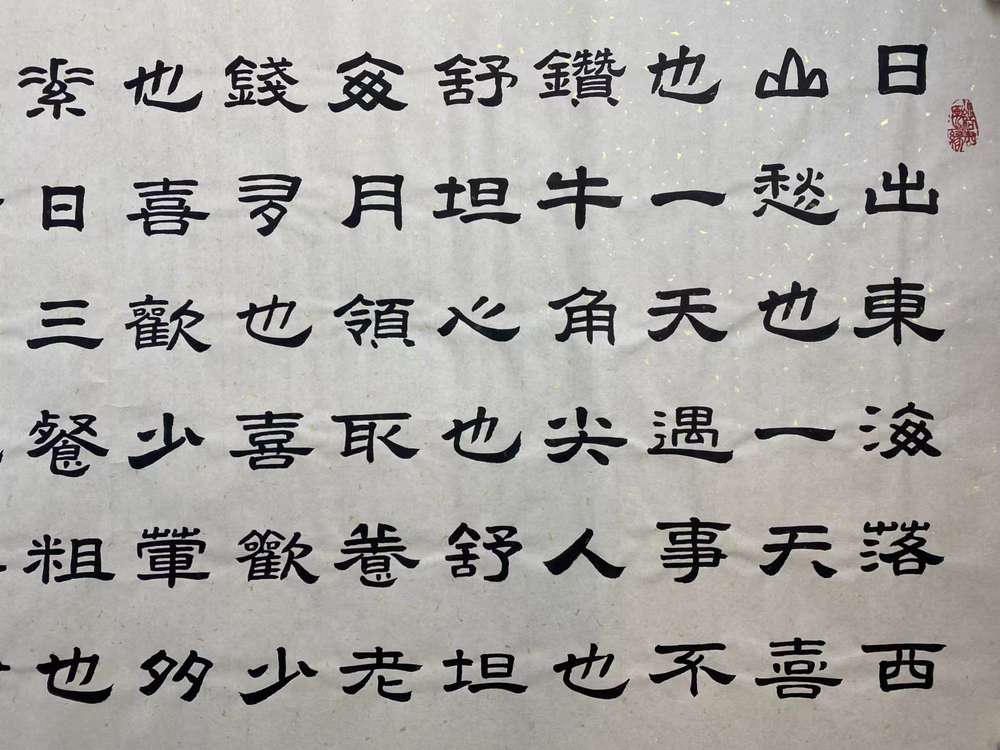 日出東海落西
山愁也一天喜
也一天遇事不
鑽牛角尖人也
舒坦心也舒坦
每月領取養老
錢多也喜歡少
也喜歡少葷多
素日三餐粗也